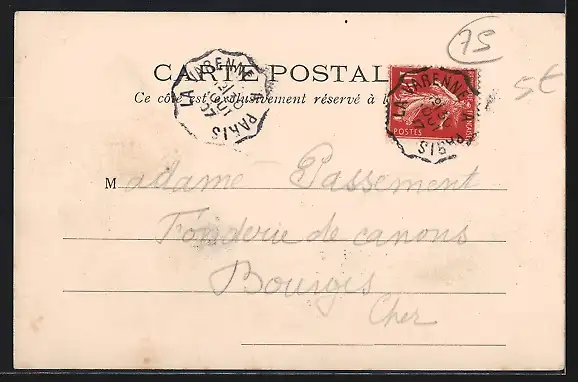 75
CARTE POSTAL
5t
Ce côté est exclusivement réservé à l
LA VARENNE A PARIS
LA VARENNE A PARIS
POSTES
Madame Passement
Fonderie de canons
Bourges
Cher